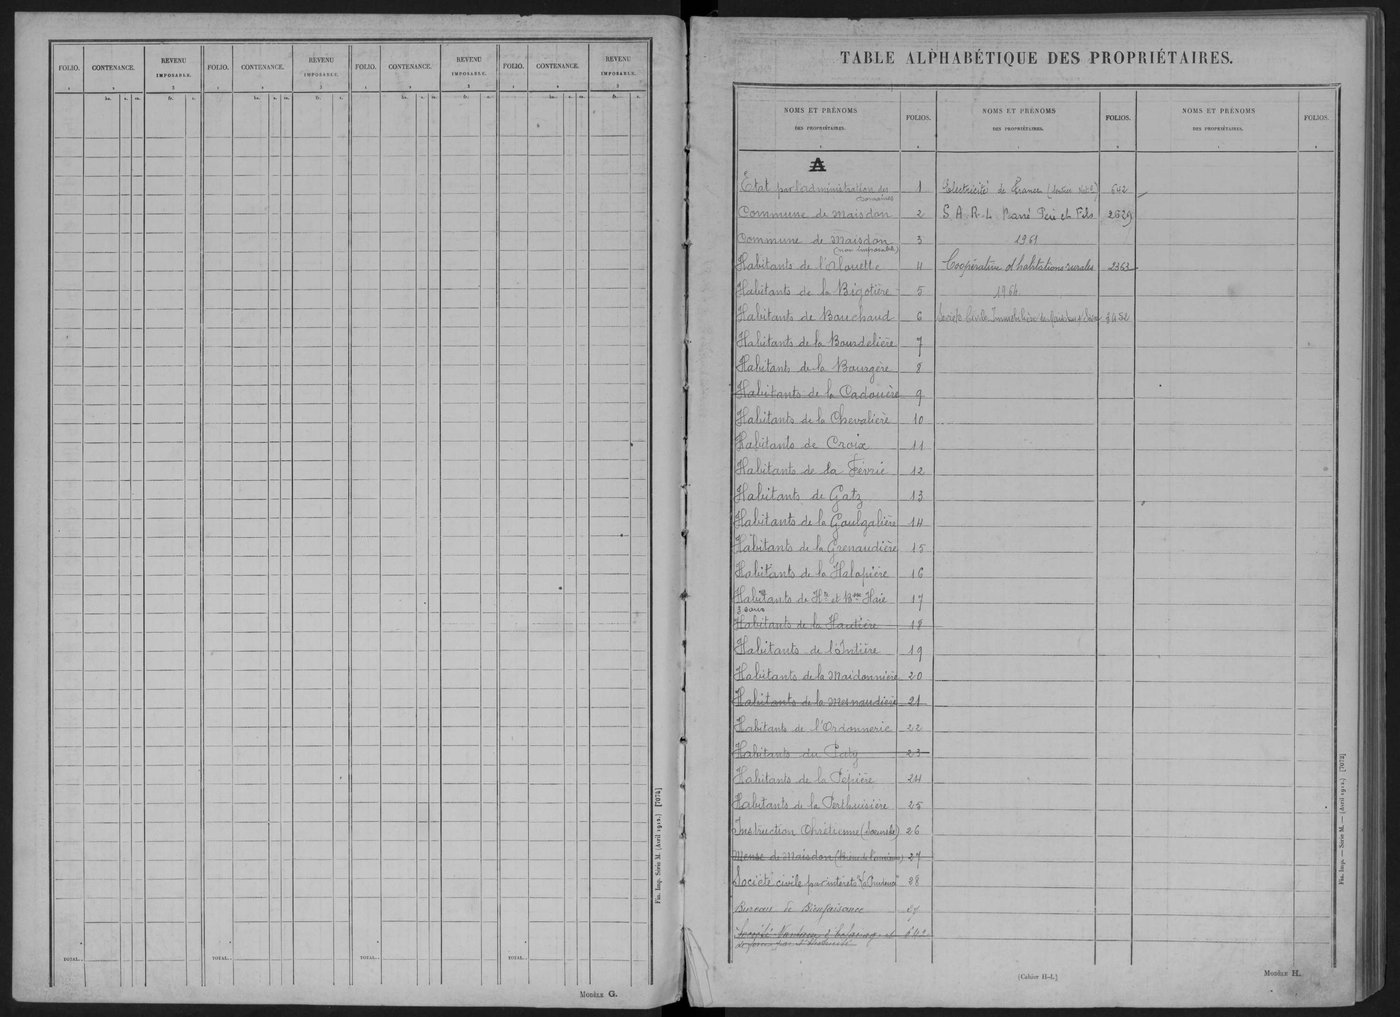 FOLIO. CONTENANCE. REVENU IMPOSABLE. FOLIO. CONTENANCE. REVENU IMPOSABLE. FOLIO. CONTENANCE. REVENU IMPOSABLE. FOLIO. CONTENANCE. REVENU IMPOSABLE.
1 2 3 1 2 3 1 2 3 1 2 3
ha. a. ca. fr. c. ha. a. ca. fr. c. ha. a. ca. fr. c. ha. a. ca. fr. c.
TOTAL. TOTAL. TOTAL. TOTAL.
Fin. Imp. Série M. (Avril 1912.) [7072]
MODÈLE G.
TABLE ALPHABÉTIQUE DES PROPRIÉTAIRES.
NOMS ET PRÉNOMS DES PROPRIÉTAIRES. FOLIOS. NOMS ET PRÉNOMS DES PROPRIÉTAIRES. FOLIOS. NOMS ET PRÉNOMS DES PROPRIÉTAIRES. FOLIOS.
1 2 1 2 1 2
A
Etat par l'administration des Domaines 1
Commune de Maisdon 2
Commune de Maisdon (non imposable) 3
Habitants de l'Alouette 4
Habitants de la Bigotière 5
Habitants de Bouchaud 6
Habitants de la Bourdelière 7
Habitants de la Bourgère 8
Habitants de la Cadouère 9
Habitants de la Chevalière 10
Habitants de Croix 11
Habitants de la Févrie 12
Habitants de Gatz 13
Habitants de la Gaulgalière 14
Habitants de la Grenaudière 15
Habitants de la Halopière 16
Habitants de Hte et Bsse Haie 17
Habitants de la Hautière 18
Habitants de l'Intière 19
Habitants de la Maidonnière 20
Habitants de la Mesnaudière 21
Habitants de l'Ordonnerie 22
Habitants du Paty 23
Habitants de la Pépière 24
Habitants de la Perthuisière 25
Instruction Chrétienne 26
Mense de Maisdon 27
Société civile par intérêts "La Prudence" 28
Bureau de Bienfaisance 27
Electricité de France 642
S. A. R. L. Père et Fils 2629
1961
Coopérative d'habitations rurales 2363
1966
Société Civile Immobilière 3452
(Cahier H-I.)
MODÈLE H.
Fin. Imp. — Série M. — (Avril 1912.) [7072]